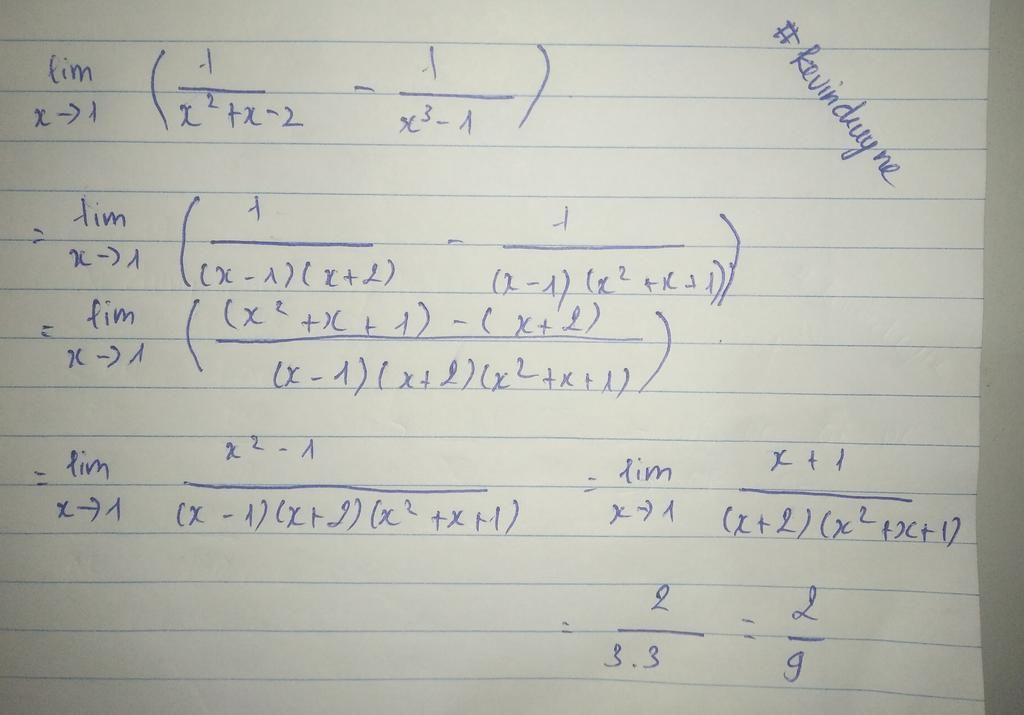 lim x→1 ( 1/(x²+x-2) - 1/(x³-1) )
#kevinduyne
= lim x→1 ( 1/((x-1)(x+2)) - 1/((x-1)(x²+x+1)) )
= lim x→1 ( ((x²+x+1)-(x+2))/((x-1)(x+2)(x²+x+1)) )
= lim x→1 (x²-1)/((x-1)(x+2)(x²+x+1)) = lim x→1 (x+1)/((x+2)(x²+x+1))
= 2/(3.3) = 2/9